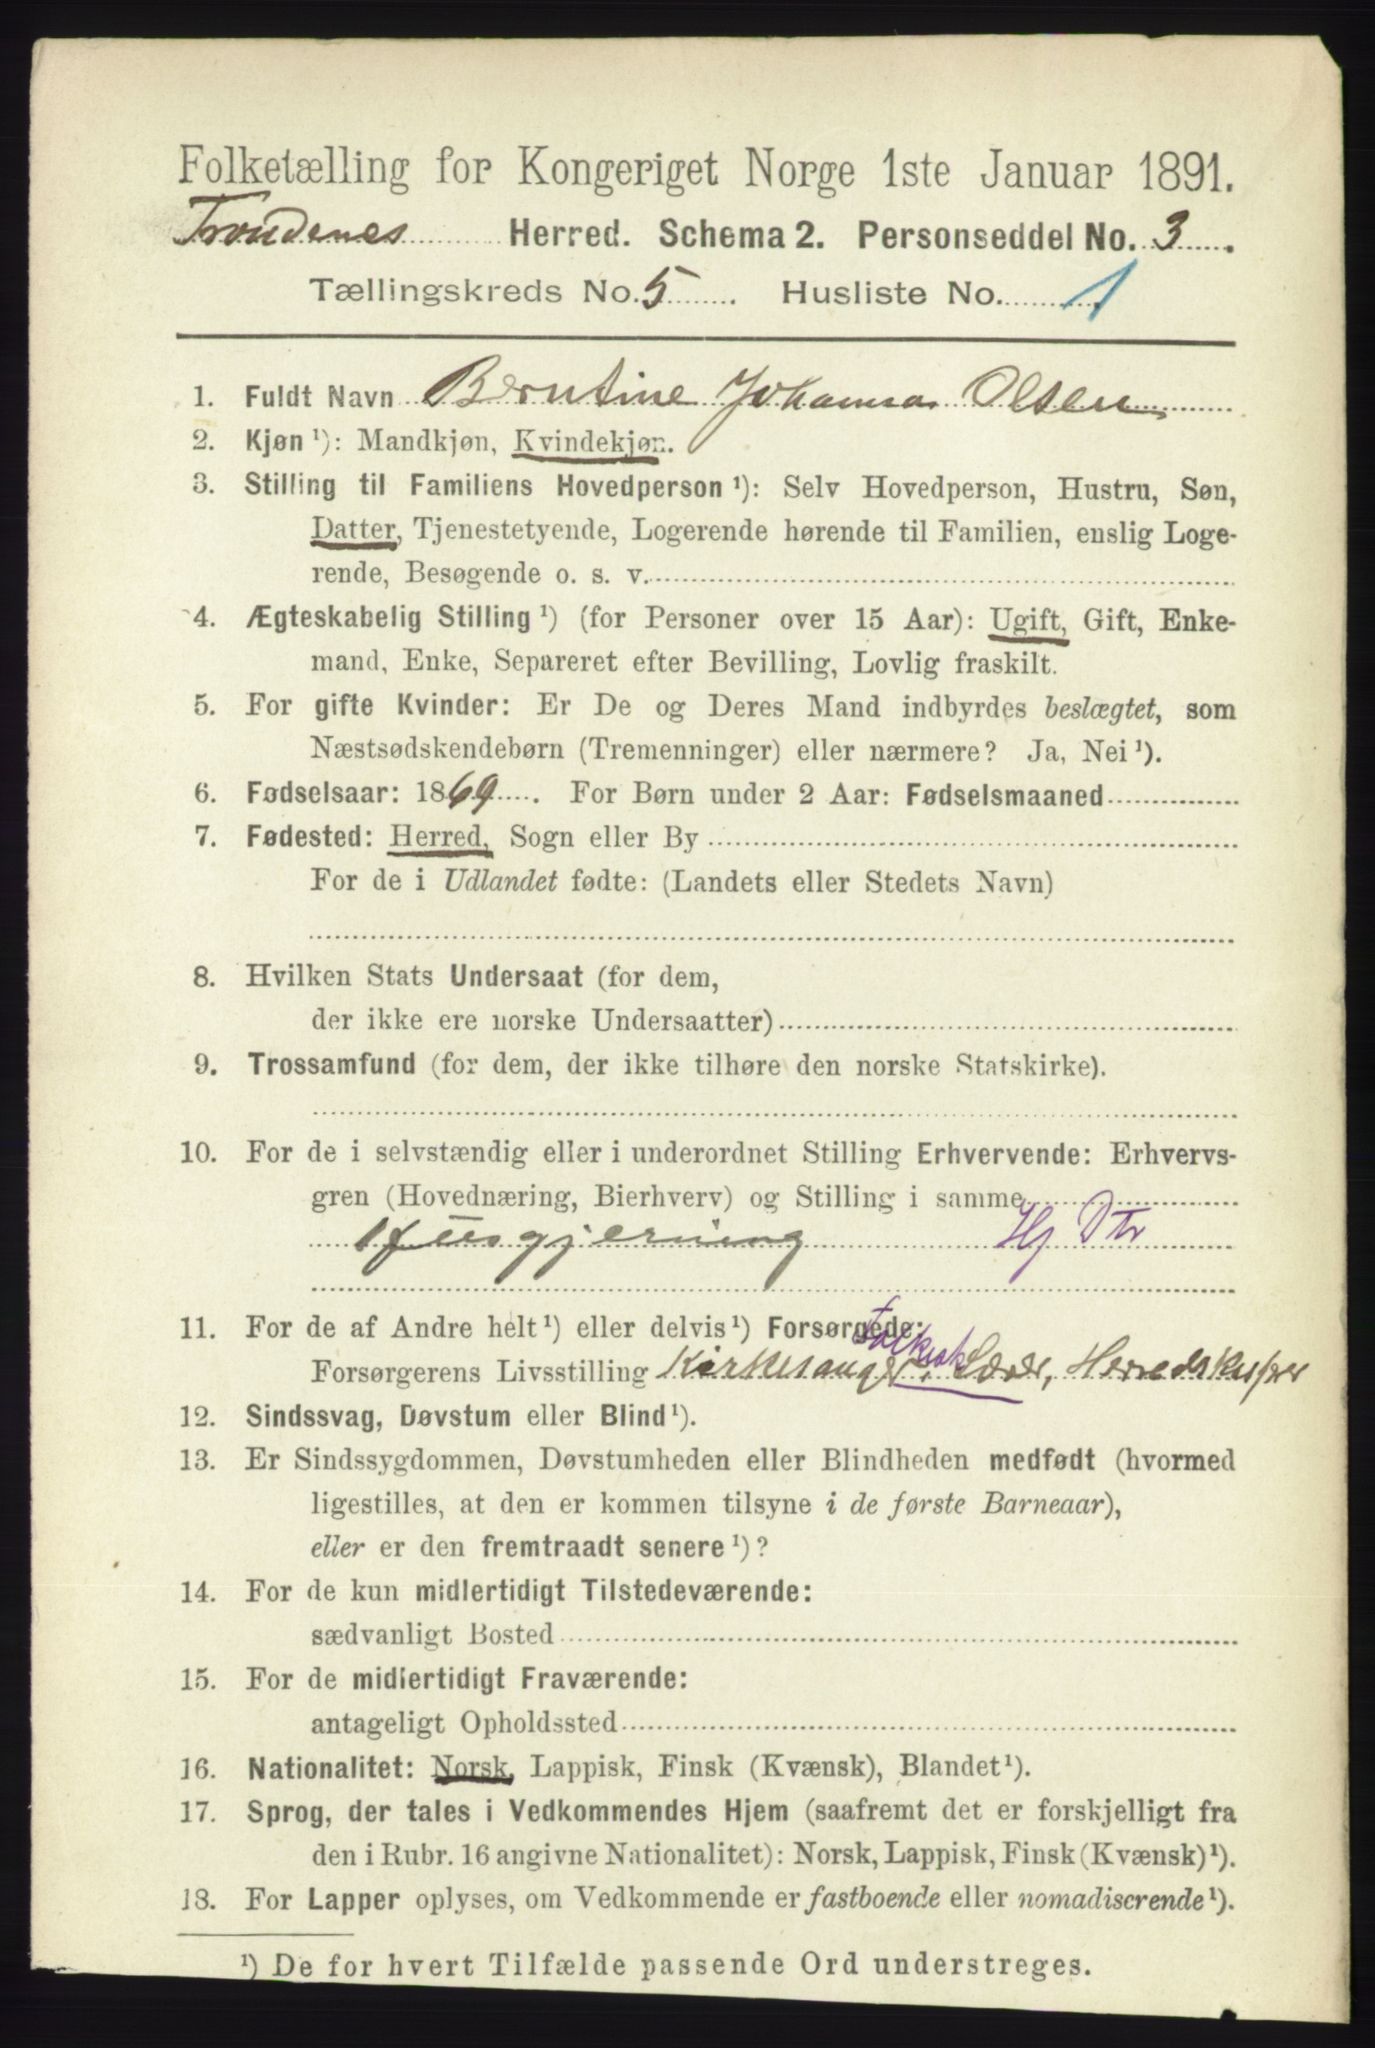 Folketælling for Kongeriget Norge 1ste Januar 1891.
Trondenes Herred. Schema 2. Personseddel No. 3.
Tællingskreds No. 5. Husliste No. 1
1. Fuldt Navn Berntine Johanna Olsen
2. Kjøn ¹): Mandkjøn, Kvindekjøn.
3. Stilling til Familiens Hovedperson ¹): Selv Hovedperson, Hustru, Søn,
Datter, Tjenestetyende, Logerende hørende til Familien, enslig Loge-
rende, Besøgende o. s. v.
4. Ægteskabelig Stilling ¹) (for Personer over 15 Aar): Ugift, Gift, Enke-
mand, Enke, Separeret efter Bevilling, Lovlig fraskilt.
5. For gifte Kvinder: Er De og Deres Mand indbyrdes beslægtet, som
Næstsødskendebørn (Tremenninger) eller nærmere? Ja, Nei ¹).
6. Fødselsaar: 1869. For Børn under 2 Aar: Fødselsmaaned
7. Fødested: Herred, Sogn eller By
For de i Udlandet fødte: (Landets eller Stedets Navn)
8. Hvilken Stats Undersaat (for dem,
der ikke ere norske Undersaatter)
9. Trossamfund (for dem, der ikke tilhøre den norske Statskirke).
10. For de i selvstændig eller i underordnet Stilling Erhvervende: Erhvervs-
gren (Hovednæring, Bierhverv) og Stilling i samme
Husgjerning Hj Dtr
11. For de af Andre helt ¹) eller delvis ¹) Forsørgede:
Folkesk
Forsørgerens Livsstilling Kirkesanger, Lærer, Herredskasser
12. Sindssvag, Døvstum eller Blind ¹).
13. Er Sindssygdommen, Døvstumheden eller Blindheden medfødt (hvormed
ligestilles, at den er kommen tilsyne i de første Barneaar),
eller er den fremtraadt senere ¹)?
14. For de kun midlertidigt Tilstedeværende:
sædvanligt Bosted
15. For de midlertidigt Fraværende:
antageligt Opholdssted
16. Nationalitet: Norsk, Lappisk, Finsk (Kvænsk), Blandet ¹).
17. Sprog, der tales i Vedkommendes Hjem (saafremt det er forskjelligt fra
den i Rubr. 16 angivne Nationalitet): Norsk, Lappisk, Finsk (Kvænsk) ¹).
18. For Lapper oplyses, om Vedkommende er fastboende eller nomadiserende ¹).
¹) De for hvert Tilfælde passende Ord understreges.